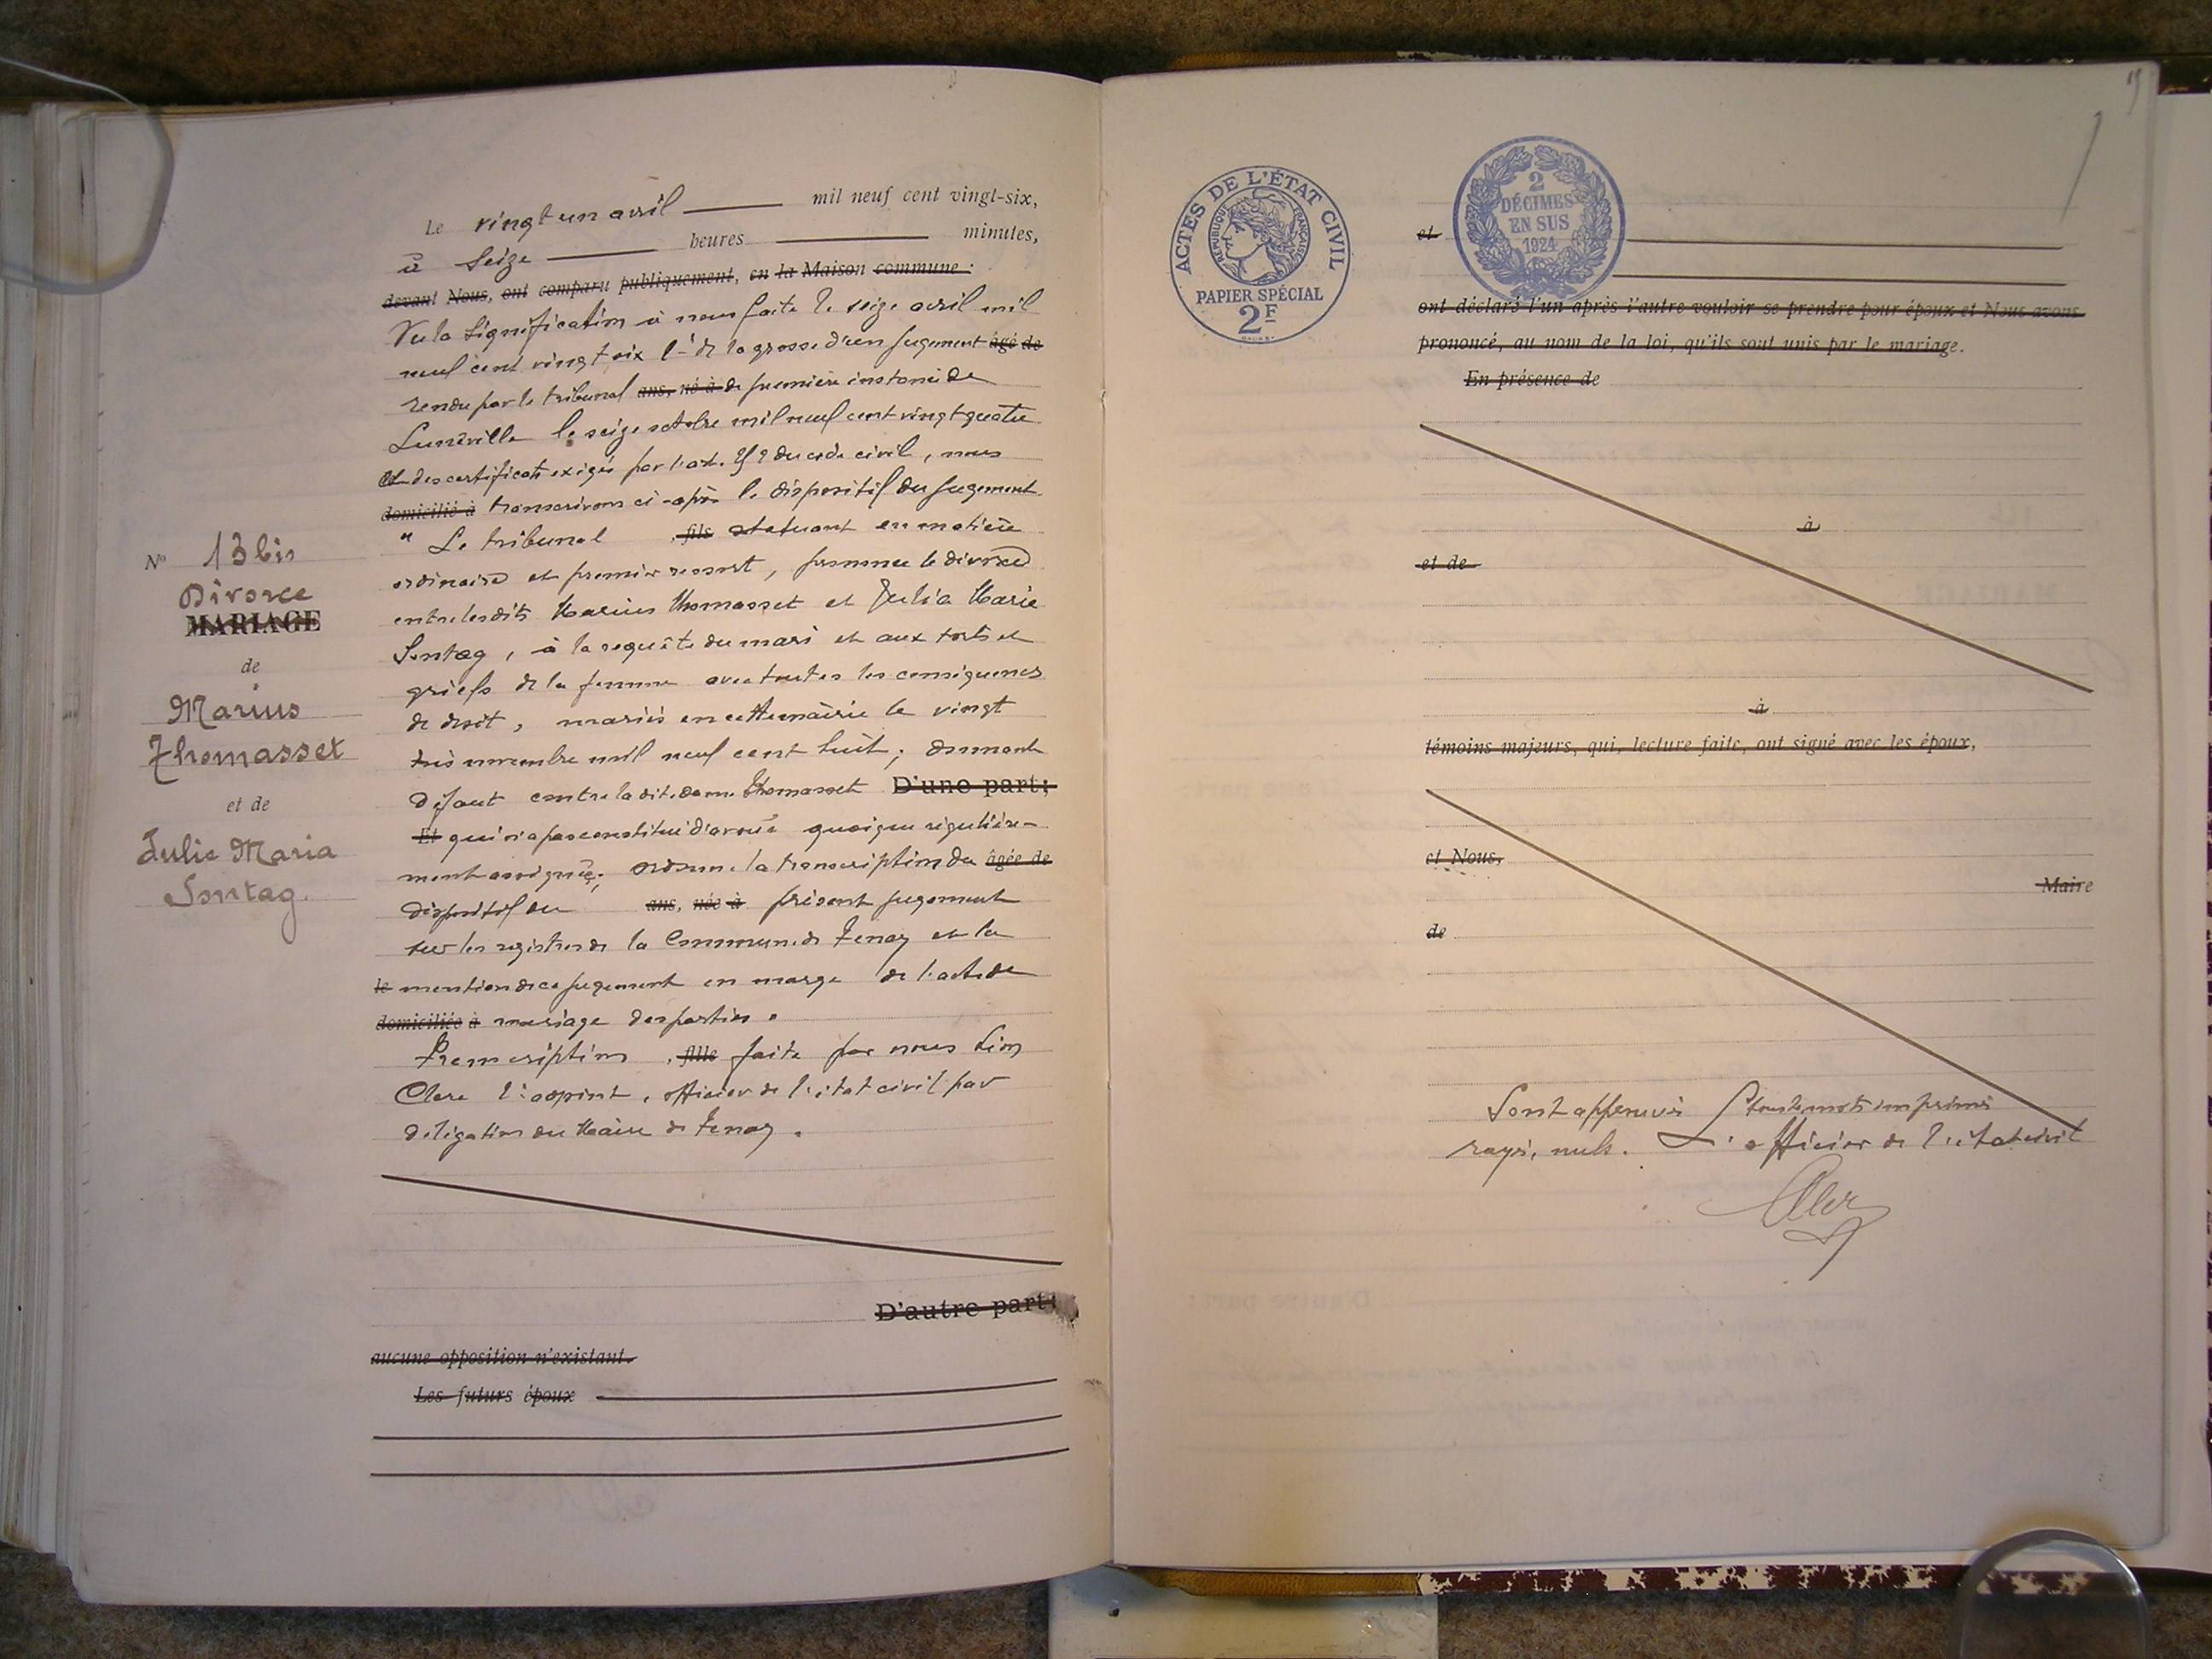 N° 13 bis
Divorce
MARIAGE
de
Marius
Thomasset
et de
Julie Maria
Sontag.
Le vingt un avril mil neuf cent vingt-six,
à seize heures minutes,
devant Nous, ont comparu publiquement, en la Maison commune :
Vu la signification à nous faite le seize avril mil
neuf cent vingt six de la grosse d'un jugement âgé de
rendu par le tribunal ans, né à de première instance de
Lunéville le seize octobre mil neuf cent vingt quatre
et des certificats exigés par l'art. du code civil, nous
domicilié à transcrivons ci-après le dispositif du jugement
" Le tribunal , fils statuant en matière
ordinaire et premier ressort, prononce le divorce
entre lesdits Marius Thomasset et Julia Marie
Sontag, à la requête du mari et aux torts et
griefs de la femme avec toutes les conséquences
de droit, mariés en cette mairie le vingt
trois novembre mil neuf cent huit ; donnant
défaut contre la dite dame Thomasset D'une part ;
Et qui n'a pas constitué d'avoué quoique régulière-
ment assignée, ordonne la transcription du âgée de
dispositif du ans, née à présent jugement
sur les registres de la Commune de Tenay et la
le mention de ce jugement en marge de l'acte de
domiciliée à mariage des parties.
Transcription , fille faite par nous Léon
Clerc l'adjoint, officier de l'état civil par
délégation du Maire de Tenay.
D'autre part ;
aucune opposition n'existant.
Les futurs époux
ACTES DE L'ÉTAT CIVIL
RÉPUBLIQUE FRANÇAISE
PAPIER SPÉCIAL
2F
2
DÉCIMES
EN SUS
1924
et
ont déclaré l'un après l'autre vouloir se prendre pour époux et Nous avons
prononcé, au nom de la loi, qu'ils sont unis par le mariage.
En présence de
à
et de
à
témoins majeurs, qui, lecture faite, ont signé avec les époux,
et Nous,
Maire
de
Sont approuvés tous les mots imprimés
rayés, nuls. L'officier de l'état civil
Clerc